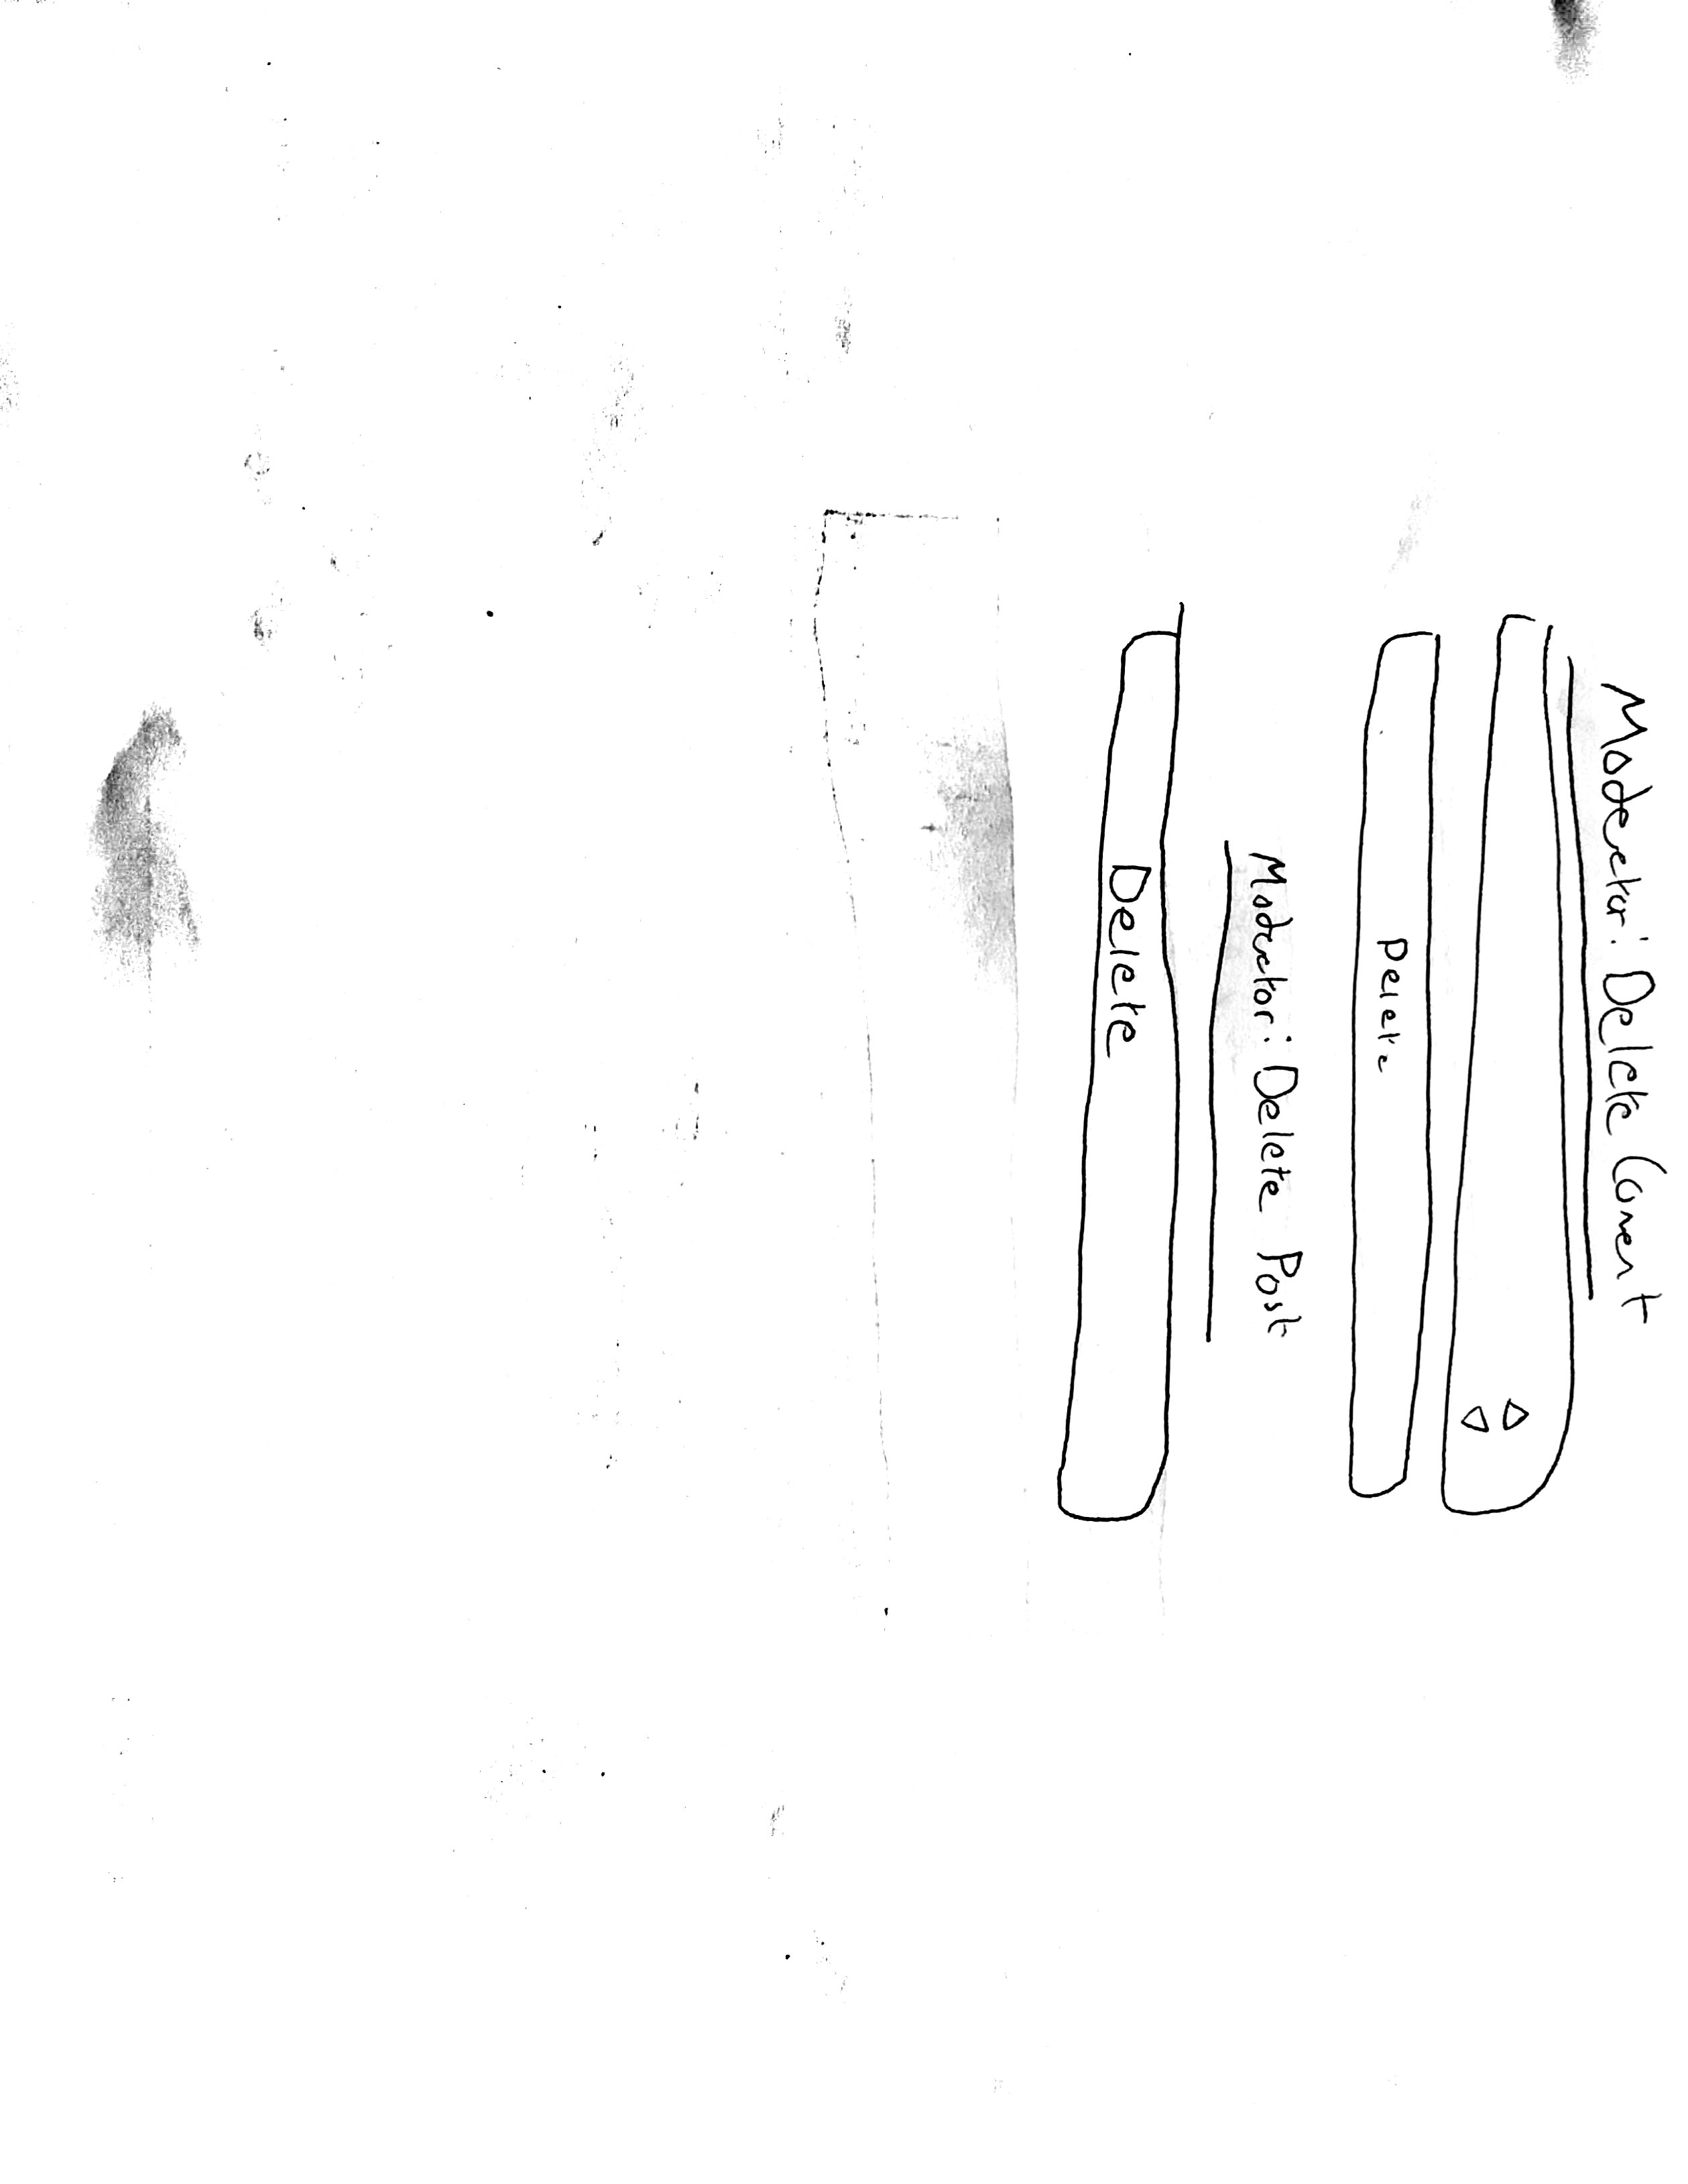 Moderator: Delete Coment
Delete
Moderator: Delete Post
Delete